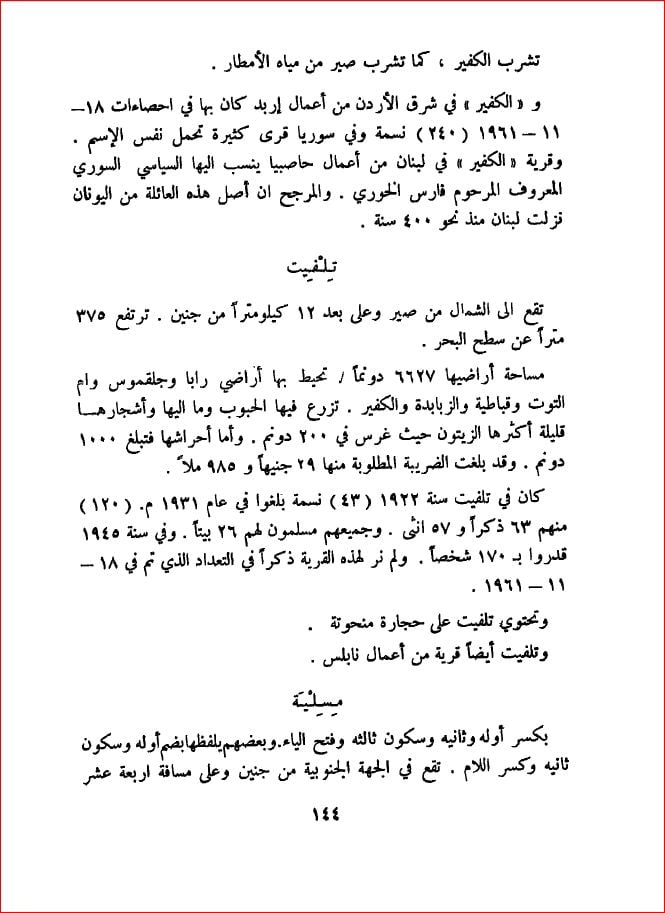 تشرب الكفير ، كما تشرب صير من مياه الأمطار .
و « الكفير » في شرق الأردن من أعمال إربد كان بها في احصاءات ١٨ —
١١ — ١٩٦١ ( ٢٤٠ ) نسمة وفي سوريا قرى كثيرة تحمل نفس الإسم .
وقرية « الكفير » في لبنان من أعمال حاصبيا ينسب اليها السياسي السوري
المعروف المرحوم فارس الخوري . والمرجح ان أصل هذه العائلة من اليونان
نزلت لبنان منذ نحو ٤٠٠ سنة .
تِلْفِيت
تقع الى الشمال من صير وعلى بعد ١٢ كيلومتراً من جنين . ترتفع ٣٧٥
متراً عن سطح البحر .
مساحة أراضيها ٦٦٢٧ دونماً / تحيط بها أراضي رابا وجلقموس وام
التوت وقباطية والزبابدة والكفير . تزرع فيها الحبوب وما اليها وأشجارهـا
قليلة أكثرها الزيتون حيث غرس في ٢٠٠ دونم . وأما أحراشها فتبلغ ١٠٠٠
دونم . وقد بلغت الضريبة المطلوبة منها ٢٩ جنيهاً و ٩٨٥ ملاً .
كان في تلفيت سنة ١٩٢٢ ( ٤٣ ) نسمة بلغوا في عام ١٩٣١ م. ( ١٢٠ )
منهم ٦٣ ذكراً و ٥٧ انثى . وجميعهم مسلمون لهم ٢٦ بيتاً . وفي سنة ١٩٤٥
قدروا بـ ١٧٠ شخصاً . ولم نر لهذه القرية ذكراً في التعداد الذي تم في ١٨ —
١١ — ١٩٦١ .
وتحتوي تلفيت على حجارة منحوتة .
وتلفيت أيضاً قرية من أعمال نابلس .
مِسِلْيَة
بكسر أوله وثانيه وسكون ثالثه وفتح الياء.وبعضهم يلفظها بضم أوله وسكون
ثانيه وكسر اللام . تقع في الجهة الجنوبية من جنين وعلى مسافة اربعة عشر
١٤٤